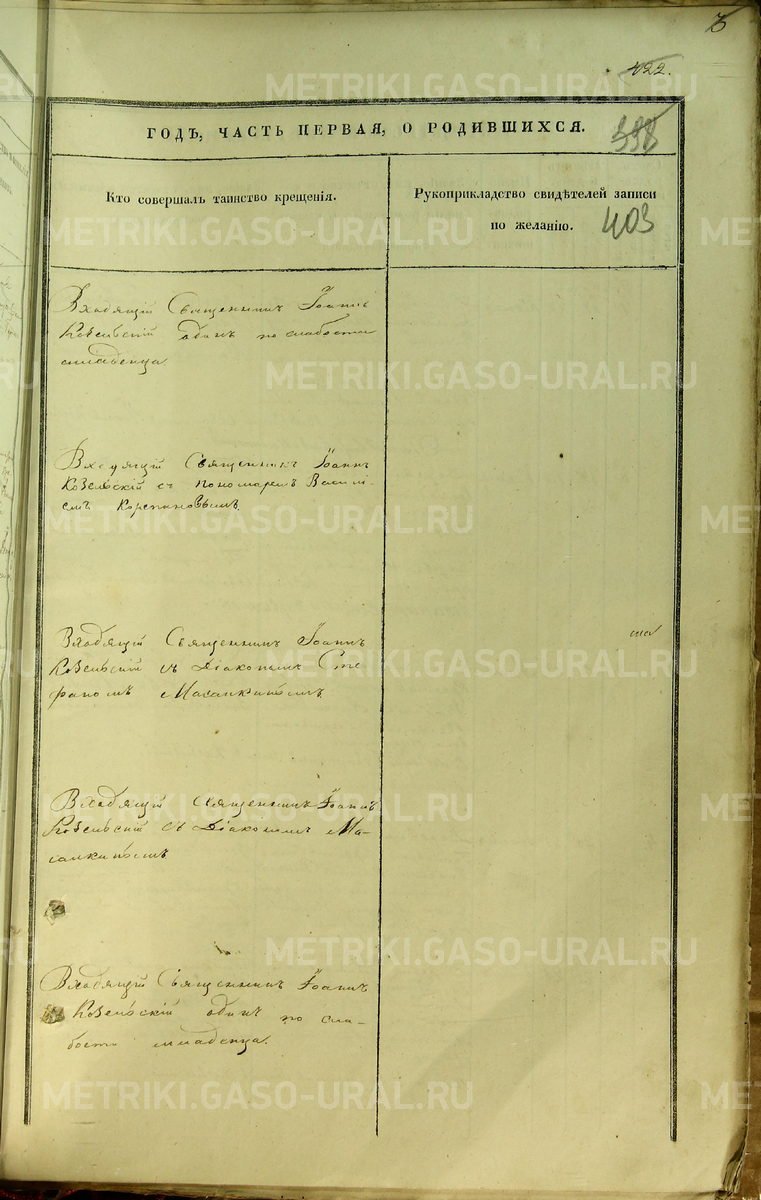 422.
ГОДЪ, ЧАСТЬ ПЕРВАЯ, О РОДИВШИХСЯ.
398
Кто совершалъ таинство крещенія.
Рукоприкладство свидѣтелей записи
по желанію.
403
Входящій Священникъ Іоаннъ
Козельскій одинъ по слабости
младенца
Входящій Священникъ Іоаннъ
Козельскій съ пономаремъ Васили-
емъ
Входящій Священникъ Іоаннъ
Козельскій съ Діакономъ Сте
фаномъ
Входящій Священникъ Іоаннъ
Козельскій съ Діакономъ
Входящій Священникъ Іоаннъ
Козельскій одинъ по сла-
бости младенца.
METRIKI.GASO-URAL.RU